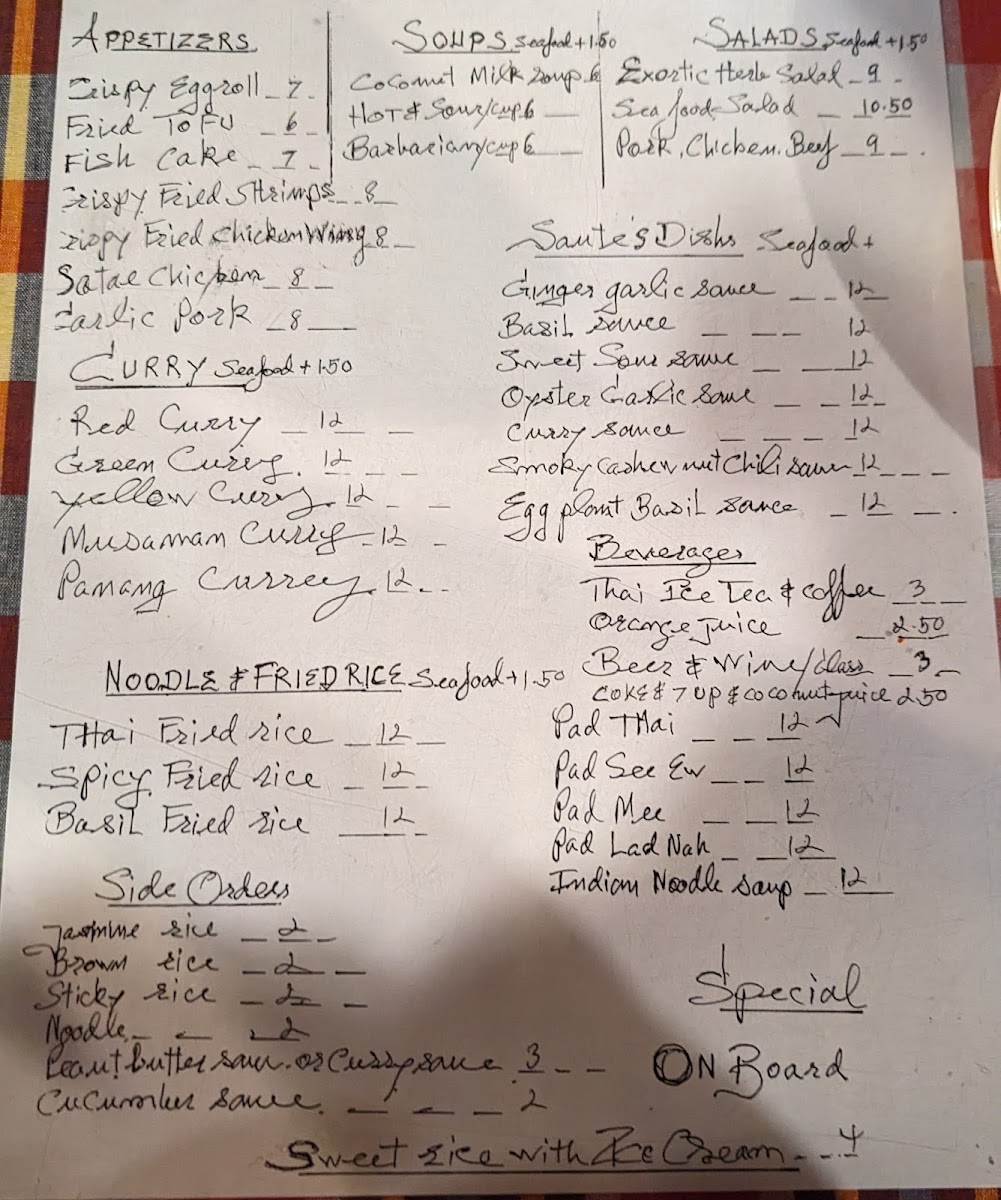 APPETIZERS
Crispy Eggroll 7
Fried ToFU 6
Fish Cake 7
Crispy Fried Shrimps 8
Crispy Fried Chicken Wing 8
Satae Chicken 8
Garlic Pork 8
SOUPS Seafood +1.50
Coconut Milk Soup 6
Hot & Sour/cup 6
Barbarian/cup 6
SALADS Seafood +1.50
Exortic Herb Salad 9
Sea food Salad 10.50
Pork, Chicken, Beef 9
CURRY Seafood +1.50
Red Curry 12
Green Curry 12
Yellow Curry 12
Musaman Curry 12
Panang Currey 12
Saute's Dishs Seafood +
Ginger garlic sauce 12
Basil sauce 12
Sweet Sour sauce 12
Oyster Garlic saue 12
Curry sauce 12
Smoky Cashew nut Chili saue 12
Egg plant Basil sauce 12
Beverages
Thai Ice Tea & coffee 3
Orange juice 2.50
Beer & Wine/Glass 3
COKE & 7 UP & coconut juice 2.50
NOODLE & FRIED RICE Seafood +1.50
THai Fried rice 12
Spicy Fried rice 12
Basil Fried rice 12
Pad THai 12
Pad See Ew 12
Pad Mee 12
Pad Lad Nah 12
Indian Noodle soup 12
Side Orders
Jasmine rice 2
Brown rice 2
Sticky rice 2
Noodle 2
Peaut butter saue or Curry sauce 3
Cucumber sauce 2
Special
ON Board
Sweet rice with Ice Cream 4